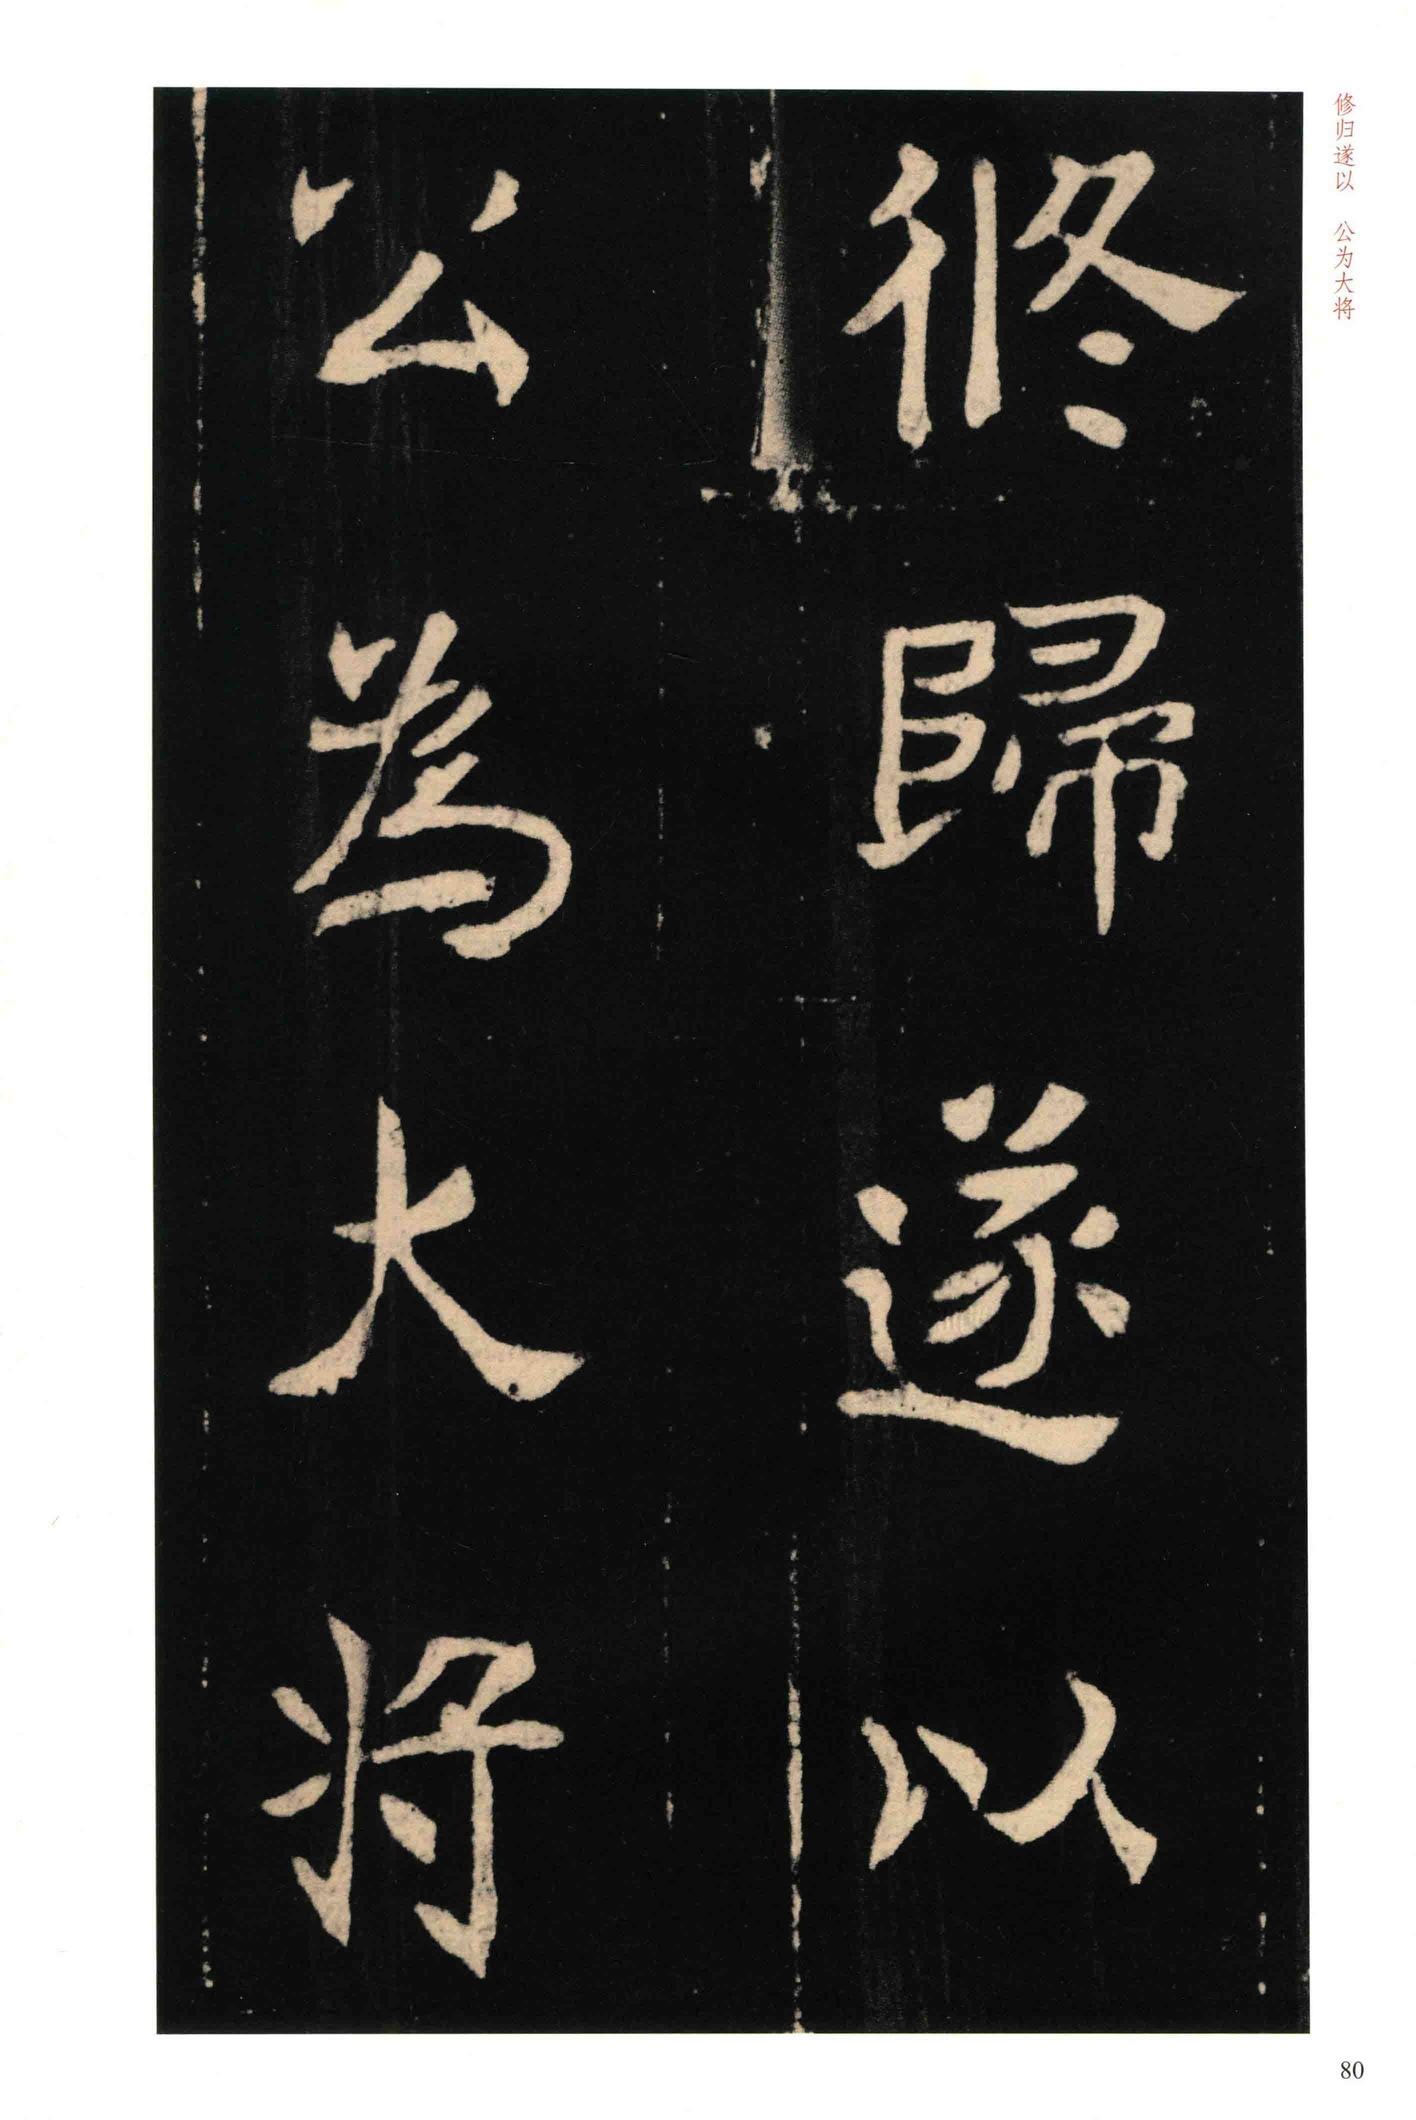 修归遂以　公为大将
修歸遂以
公為大将
80